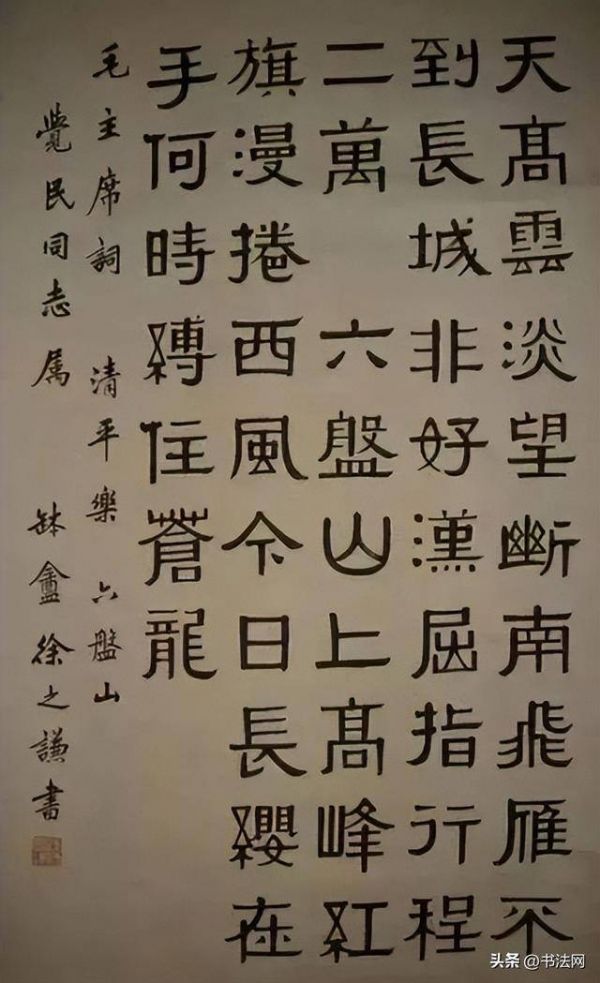 天髙雲淡望斷南飛雁不
到長城非好漢屈指行程
二萬 六盤山上髙峰紅
旗漫捲西風今日長纓在
手何時縛住蒼龍
毛主席詞 清平樂 六盤山
覺民同志属 缽盦徐之謙書
头条 @书法网